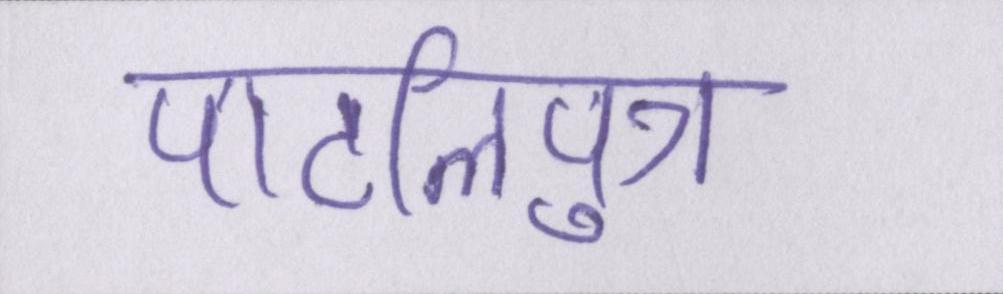 पाटलिपुत्र